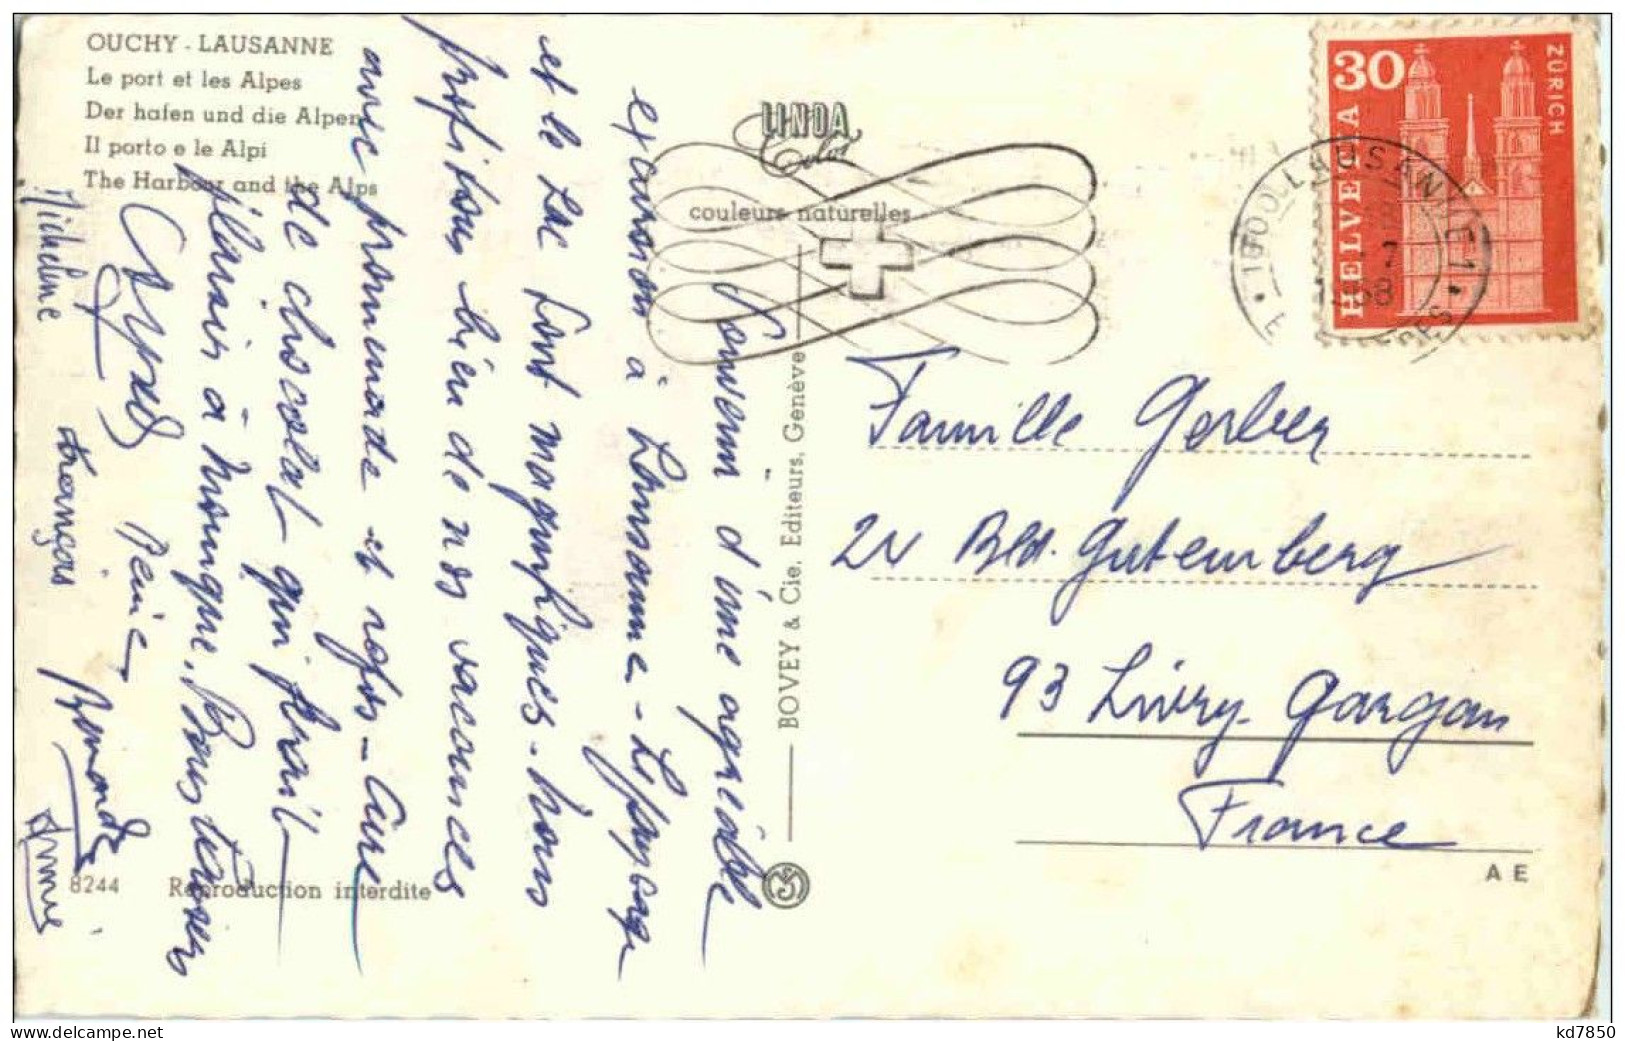 OUCHY - LAUSANNE
Le port et les Alpes
Der hafen und die Alpen
Il porto e le Alpi
The Harbour and the Alps
LINDA
Color
couleurs naturelles
30
HELVETIA
ZÜRICH
1000 LAUSANNE 1
Souvenir d'une agréable
excursion à Lausanne - Le paysage
et le Lac sont magnifiques - nous
profitons bien de nos vacances
avec promenade et repos -
de chocolat qui ferait
plaisir à
Micheline
François
BOVEY & Cie, Editeurs, Genève
Famille Gerber
Bld. Gutemberg
93 Livry-Gargan
France
A E
8244
Reproduction interdite
kd7850